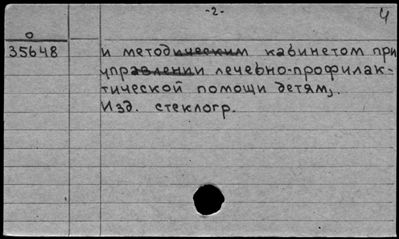 -2-
4
0
35648
и методическим кабинетом при
управлении лечебно-профилак-
тической помощи детям,.
Изд. стеклогр.